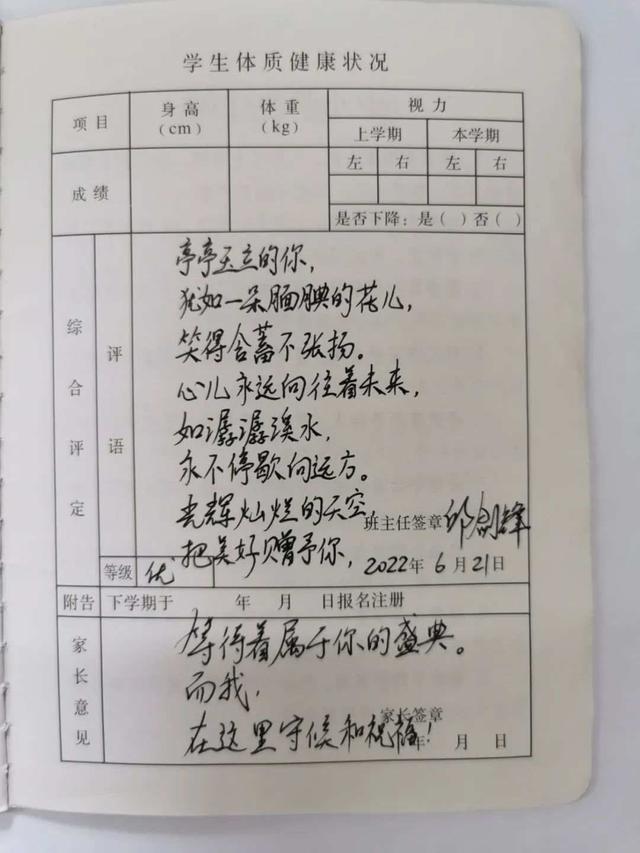 学生体质健康状况
项目 身高(cm) 体重(kg) 视力
上学期 本学期
左 右 左 右
成绩
是否下降：是（ ）否（ ）
综合评定
评语
亭亭玉立的你，
犹如一朵腼腆的花儿，
笑得含蓄不张扬。
心儿永远向往着未来，
如潺潺溪水，
永不停歇向远方。
光辉灿烂的天空
班主任签章 邱剑锋
把美好赠予你，
等级 优 2022年6月21日
附告 下学期于 年 月 日报名注册
家长意见
等待着属于你的盛典。
而我，
家长签章
在这里守候和祝福！
年 月 日